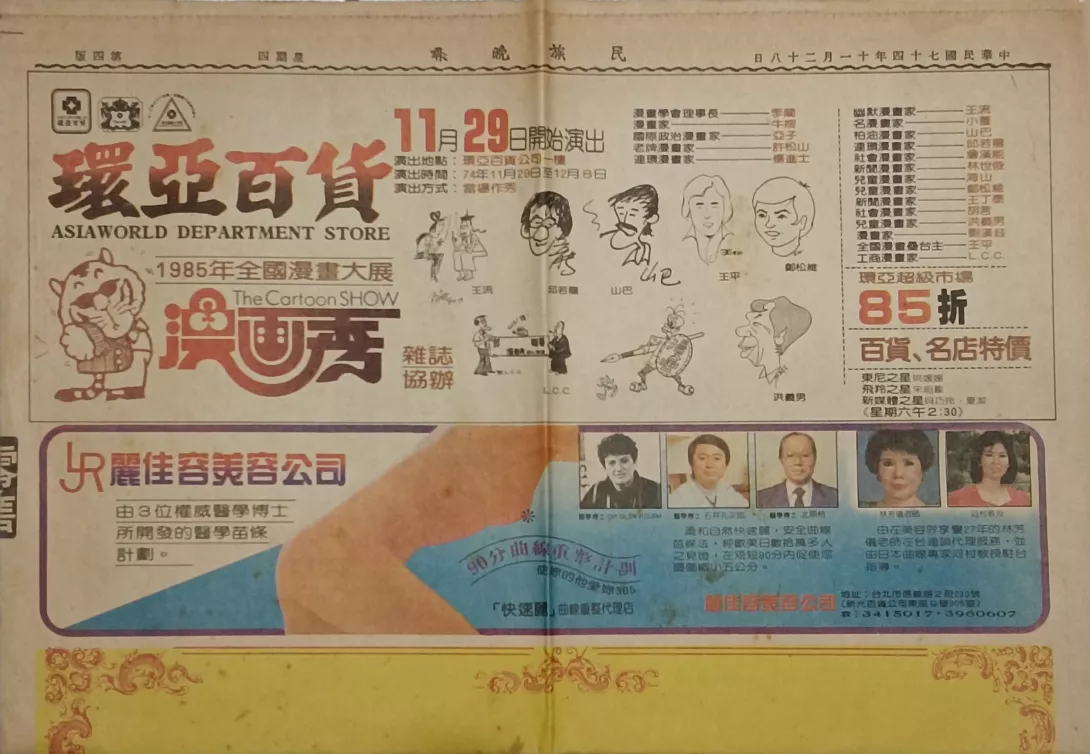 中華民國七十四年十一月二十八日
民族晚報
星期四
第四版
環亞百貨
ASIAWORLD DEPARTMENT STORE
1985年全國漫畫大展
The Cartoon SHOW
漫画秀
雜誌
協辦
11月29日開始演出
演出地點：環亞百貨公司一樓
演出時間：74年11月29日至12月8日
演出方式：當場作秀
漫畫學會理事長——李闡
漫畫家——牛哥
國際政治漫畫家——亞子
老牌漫畫家——許松山
連環漫畫家——楊進士
幽默漫畫家——王流
名漫畫家——小董
柏油漫畫家——山巴
連環漫畫家——邱若龍
社會漫畫家——
新聞漫畫家——
兒童漫畫家——海山
兒童漫畫家——鄭松維
新聞漫畫家——王丁泰
社會漫畫家——胡笳
兒童漫畫家——洪義男
漫畫家——
全國漫畫擂台主——王平
工商漫畫家——L.C.C.
王流
邱若龍
山巴
王平
鄭松維
L.C.C.
L.C.C.
洪義男
環亞超級市場
85折
百貨、名店特價
東尼之星
飛羚之星
新媒體之星
(星期六午2:30)
JR麗佳容美容公司
由3位權威醫學博士
所開發的醫學苗條
計劃。
90分曲線重整計劃
使妳的他愛妳365
「快速麗」曲線重整代理店
醫學博士
醫學博士 石井
醫學博士
林芳儀老師
河村教授
柔和自然快速麗，安全曲線
苗條法，經歐美日數拾萬多人
之見證，在短短90分內促使您
腰圍縮小五公分。
由在美容界享譽27年的林芳
儀老師在台連鎖代理服務，並
由日本曲線專家河村教授駐台
指導。
麗佳容美容公司
地址：台北市
電：3415017・3960607